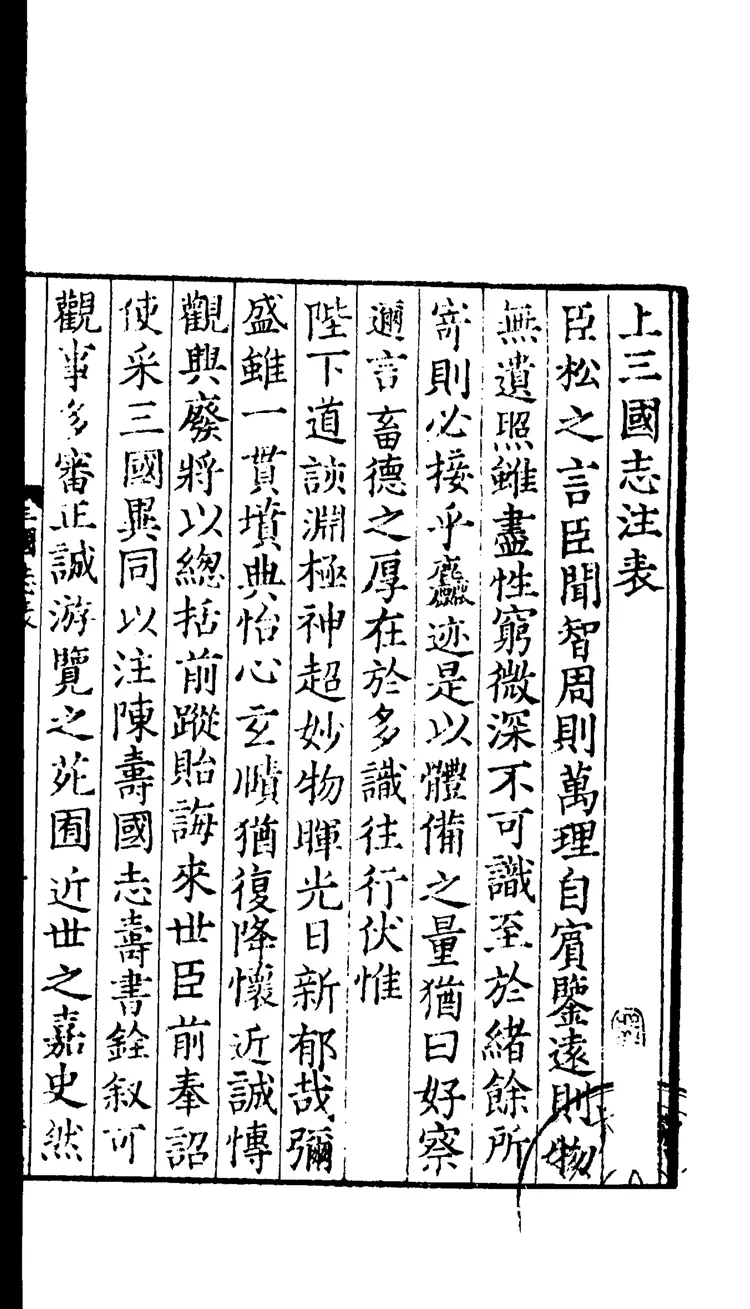 上三國志注表
臣松之言臣聞智周則萬理自賓鑒遠則物
無遺照雖盡性窮微深不可識至於緒餘所
寄則必接乎麤迹是以體備之量猶曰好察
邇言畜德之厚在於多識往行伏惟
陛下道談淵極神超妙物暉光日新郁哉彌
盛雖一貫墳典怡心玄賾猶復降懷近誡愽
觀興廢將以總括前蹤貽誨來世臣前奉詔
使采三國異同以注陳壽國志壽書銓叙可
觀事多審正誠游覽之苑囿近世之嘉史然
三國志表